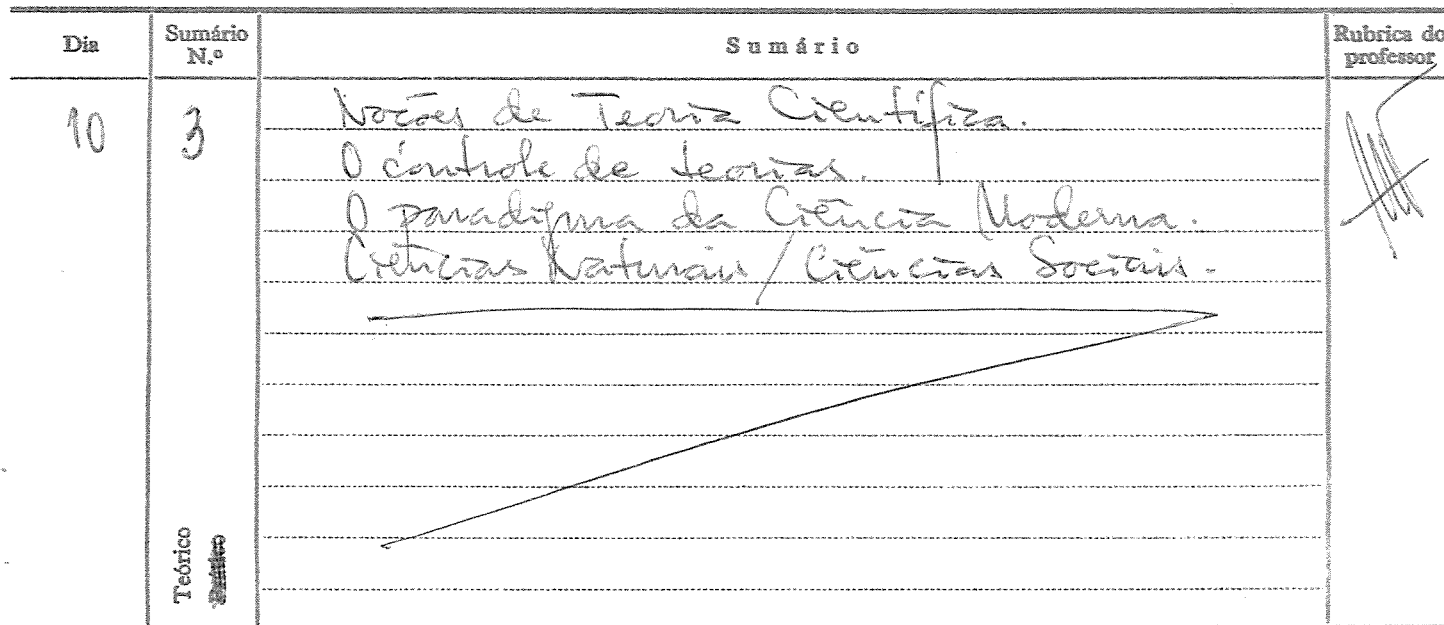 Dia
Sumário N.º
Sumário
Rubrica do professor
10
3
Noções de Teoria Científica.
O controle de teorias.
O paradigma da Ciência Moderna.
Ciências Naturais / Ciências Sociais.
Teórico